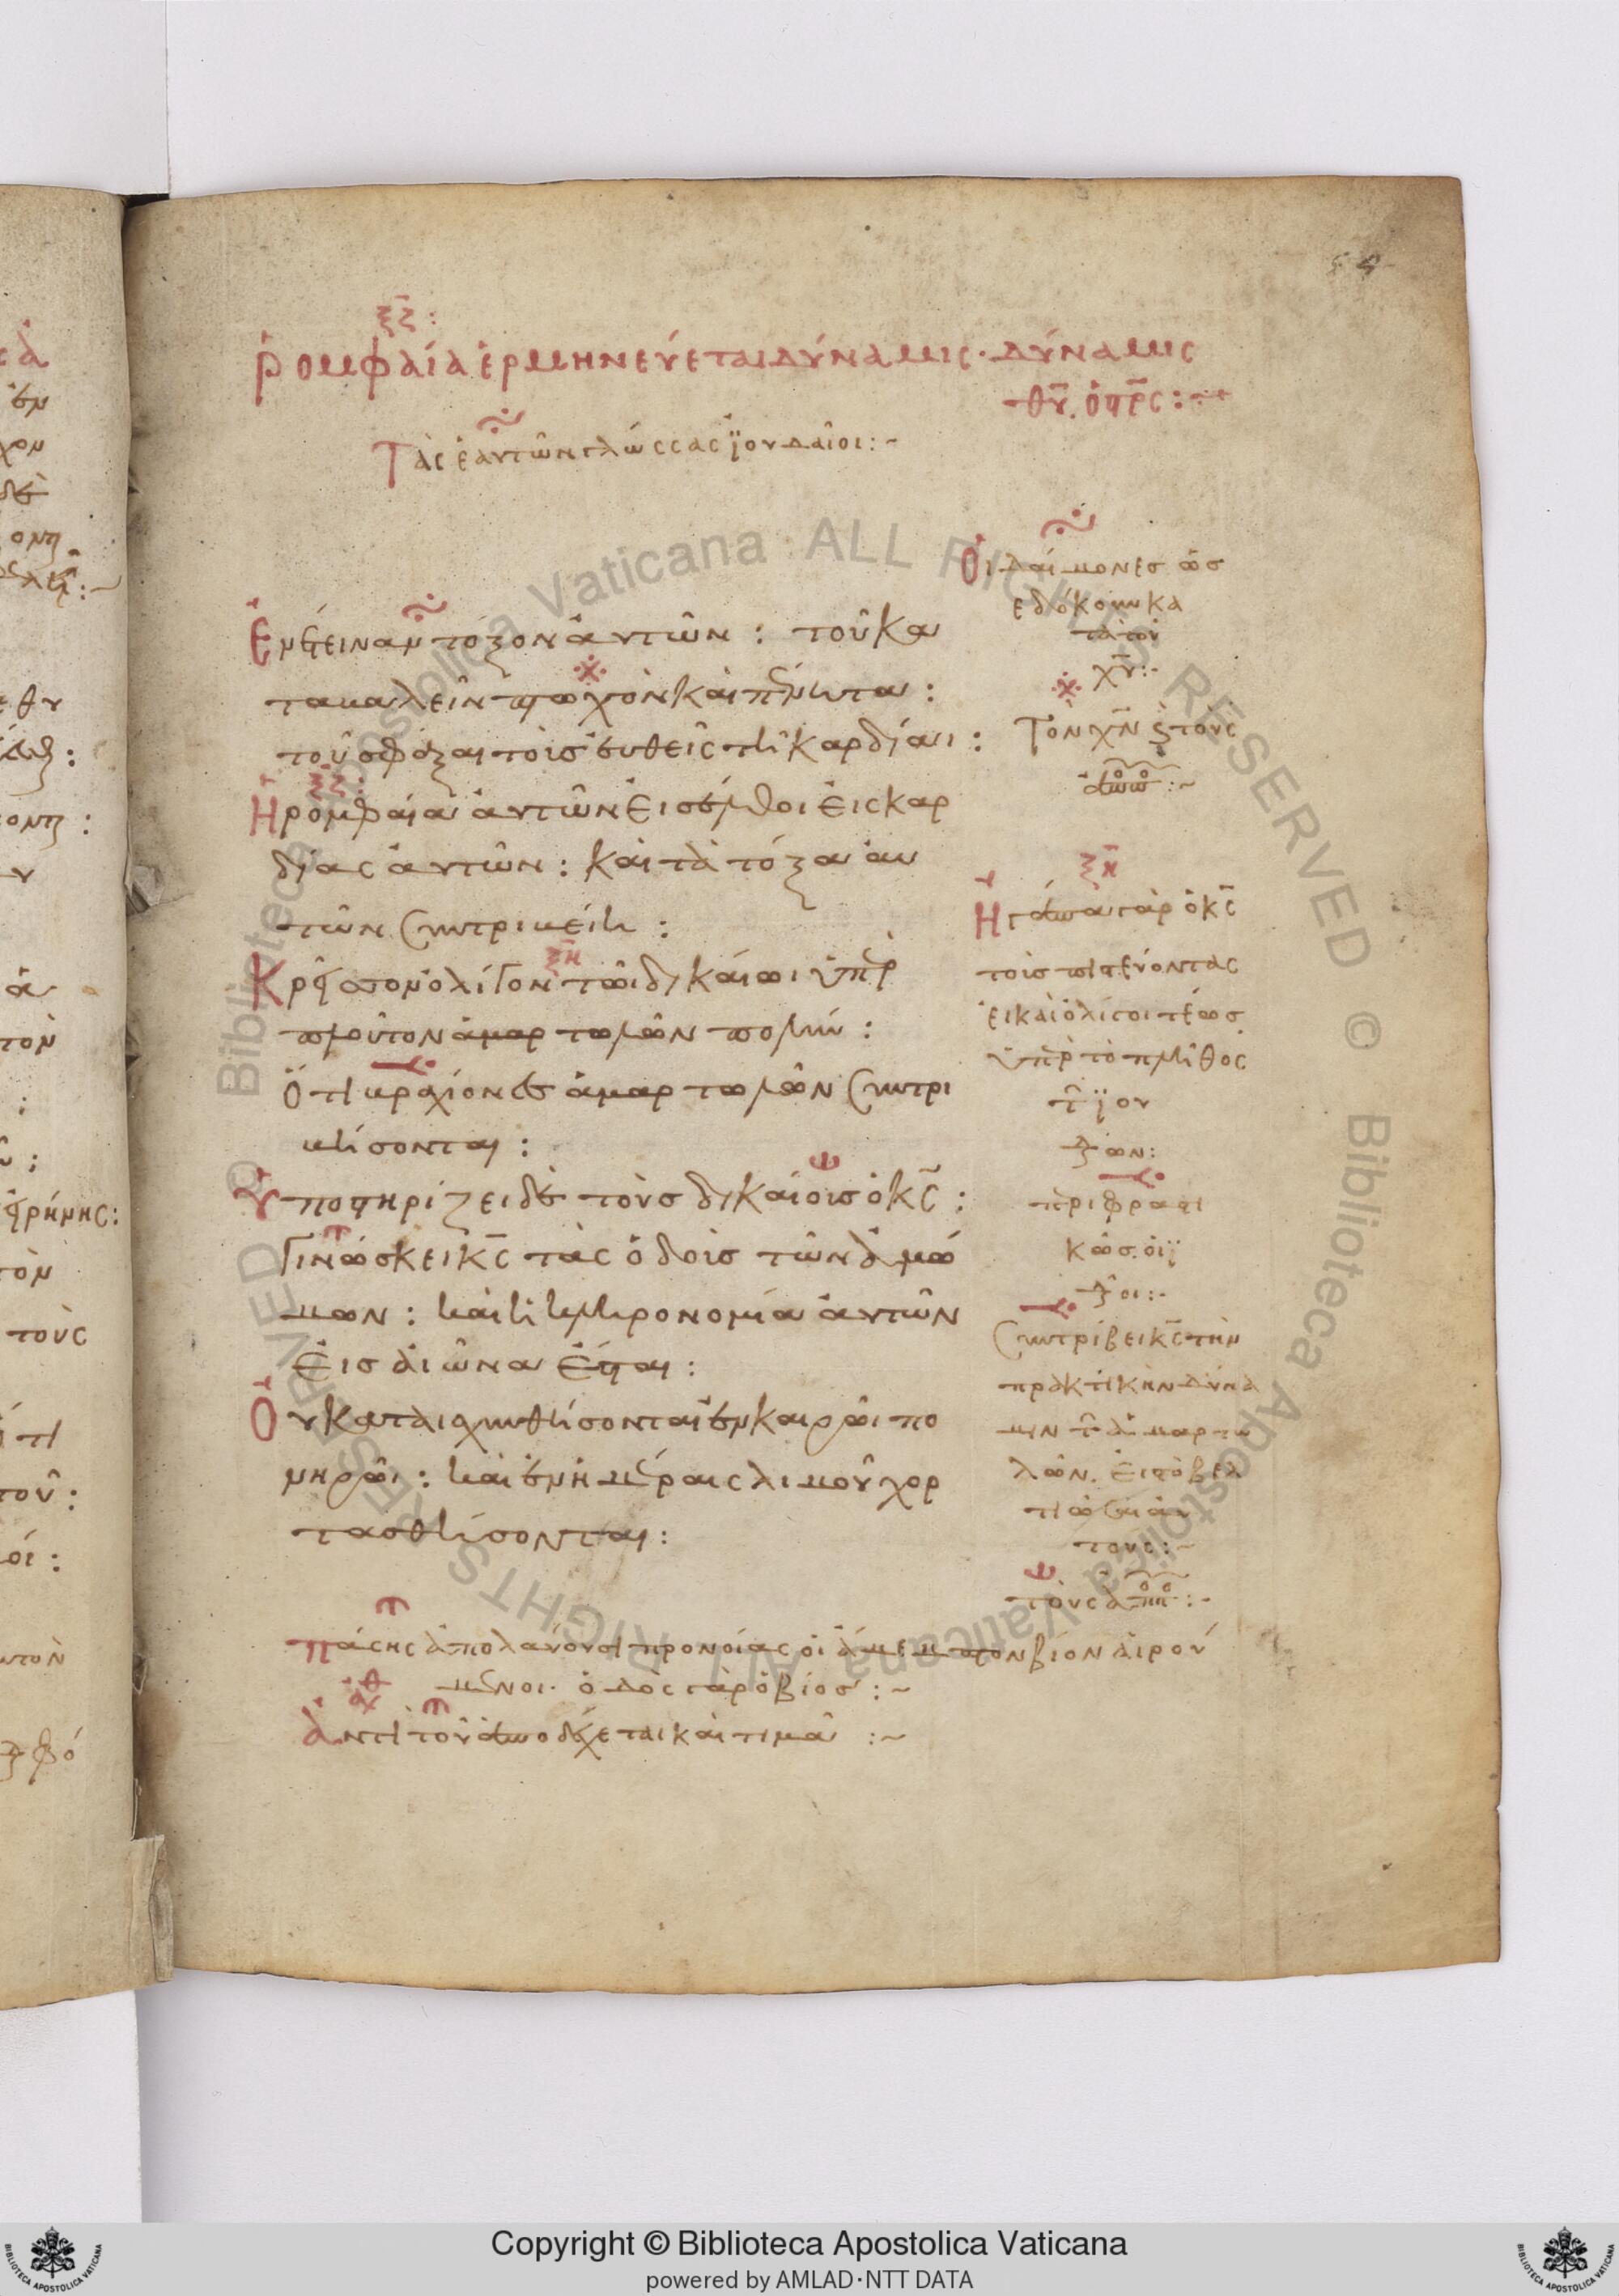 54
ξζ:
Ῥομφαία ἑρμηνεύεται δύναμις· δύναμις
θῡ. ὁ π̅ρ̅ς:
Τὰς ἑαυτῶν γλώσσας ϊουδαῖοι:~
Ἐνέτειναν τόξον αὐτῶν: τοῦ κα
ταβαλεῖν πτωχὸν καὶ πένητα:
τοῦ σφάξαι τοὺς εὐθεῖς τῆι καρδίαι:
ξζ:
Ἡ ρομφαία αὐτῶν εἰσέλθοι εἰς καρ
δίας αὐτῶν: καὶ τὰ τόξα αὐ
τῶν συντριβείη:
ξη
Κρεῖσσον ὀλίγον τῶι δικαίωι ὑπὲρ
πλοῦτον ἁμαρτωλῶν πολύν:
Ὅτι βραχίονες ἁμαρτωλῶν συντρι
βήσονται:
Ὑποστηρίζει δὲ τοὺς δικαίους ὁ κ̅ς̅:
Γινώσκει κ̅ς̅ τὰς ὁδοὺς τῶν ἀμώ
μων: καὶ ἡ κληρονομία αὐτῶν
εἰς αἰῶνα ἔσται:
Οὐ καταισχυνθήσονται ἐν καιρῶι πο
νηρῶι: καὶ ἐν ἡμέραις λιμοῦ χορ
τασθήσονται:
Οἱ δαίμονες ὡς
εδόκουν κα
τὰ τοῦ
χ̅υ̅:-
Τὸν χ̅ν̅ ϛ τοὺς
ἀποο:~
ξη
Ἠγάπα γὰρ ὁ κ̅ς̅
τοὺς πιστεύοντας
εἰ καὶ ὀλίγοι τέως
ὑπὲρ τὸ πλῆθος
τ̑ ϊου
δων:
περιφραστι
κῶς. οἱ ϊ
δοι:-
Συντρίβει κ̅ς̅ τὴν
πρακτικὴν δύνα
μιν τ̑ ἁμαρτω
λῶν. εἰς τὸ βελ
τιῶσαι αὐ
τούς:~
τοὺς ἀππ:-
Πάσης ἀπολαύουσι προνοίας οἱ ἄμεμπτον βίον αἱρού
μενοι. ὁδὸς γὰρ ὁ βίος:~
Ἀντὶ τοῦ ἀποδέχεται καὶ τιμᾶ:~
Copyright © Biblioteca Apostolica Vaticana
powered by AMLAD·NTT DATA